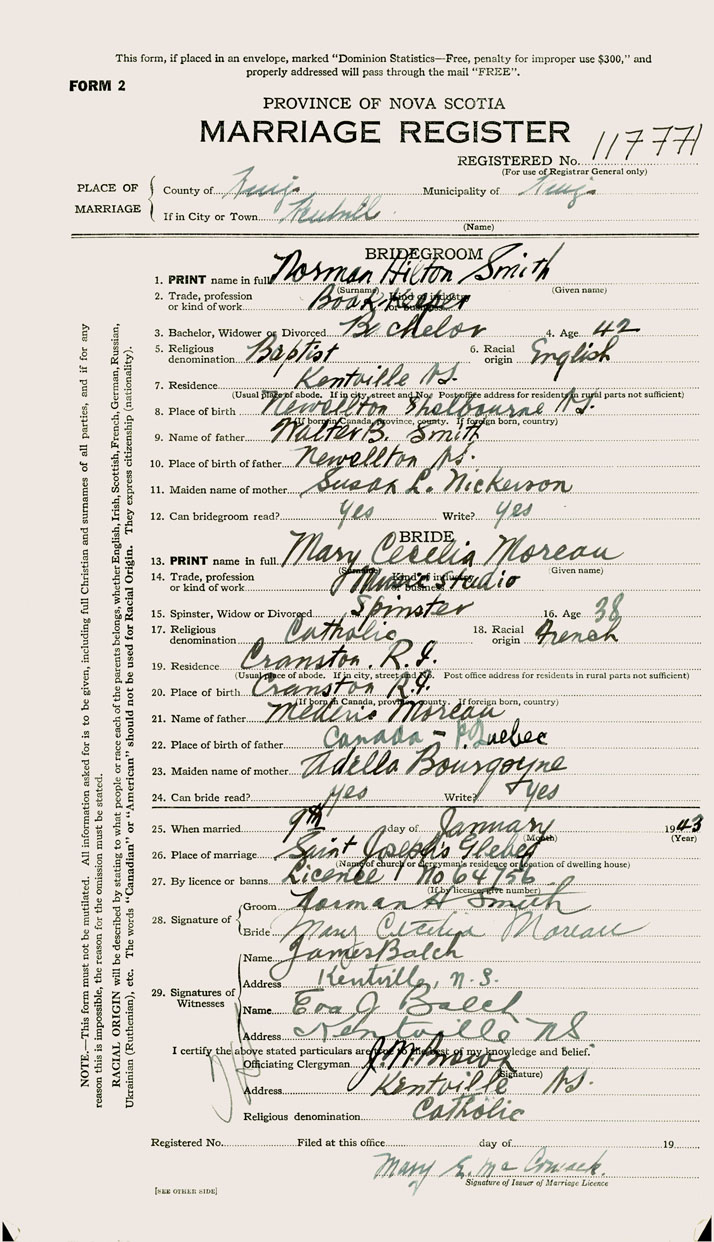 This form, if placed in an envelope, marked "Dominion Statistics—Free, penalty for improper use $300," and
properly addressed will pass through the mail "FREE".
FORM 2
PROVINCE OF NOVA SCOTIA
MARRIAGE REGISTER
REGISTERED No. 117771
(For use of Registrar General only)
PLACE OF MARRIAGE
County of Kings Municipality of Kings
If in City or Town Kentville
(Name)
BRIDEGROOM
1. PRINT name in full Norman Hilton Smith
(Surname) (Given name)
2. Trade, profession or kind of work Book Keeper Kind of industry or business
3. Bachelor, Widower or Divorced Bachelor 4. Age 42
5. Religious denomination Baptist 6. Racial origin English
7. Residence Kentville N.S.
(Usual place of abode. If in city, street and No. Post office address for residents in rural parts not sufficient)
8. Place of birth Newellton Shelbourne N.S.
(If born in Canada, province, county. If foreign born, country)
9. Name of father Walter B. Smith
10. Place of birth of father Newellton N.S.
11. Maiden name of mother Susan L. Nickerson
12. Can bridegroom read? yes Write? yes
BRIDE
13. PRINT name in full Mary Cecelia Moreau
(Surname) (Given name)
14. Trade, profession or kind of work Music Studio Kind of industry or business
15. Spinster, Widow or Divorced Spinster 16. Age 38
17. Religious denomination Catholic 18. Racial origin French
19. Residence Cranston. R.I.
(Usual place of abode. If in city, street and No. Post office address for residents in rural parts not sufficient)
20. Place of birth Cranston R.I.
(If born in Canada, province, county. If foreign born, country)
21. Name of father Mederic Moreau
22. Place of birth of father Canada - P. Quebec
23. Maiden name of mother Adella Bourgoyne
24. Can bride read? yes Write? yes
25. When married 9th day of January 1943
(Month) (Year)
26. Place of marriage Saint Joseph's Glebe
(Name of church or clergyman's residence or location of dwelling house)
27. By licence or banns Licence No 64756
(If by licence, give number)
28. Signature of
Groom Norman H Smith
Bride Mary Cecelia Moreau
29. Signatures of Witnesses
Name James Balch
Address Kentville, N.S.
Name Eva J Balch
Address Kentville NS
I certify the above stated particulars are true to the best of my knowledge and belief.
Officiating Clergyman J. N. Brown
(Signature)
Address Kentville N.S.
Religious denomination Catholic
Registered No. Filed at this office day of 19
Mary E. McCormack.
Signature of Issuer of Marriage Licence
[SEE OTHER SIDE]
NOTE.—This form must not be mutilated. All information asked for is to be given, including full Christian and surnames of all parties, and if for any
reason this is impossible, the reason for the omission must be stated.
RACIAL ORIGIN will be described by stating to what people or race each of the parents belongs, whether English, Irish, Scottish, French, German, Russian,
Ukrainian (Ruthenian), etc. The words "Canadian" or "American" should not be used for Racial Origin. They express citizenship (nationality).